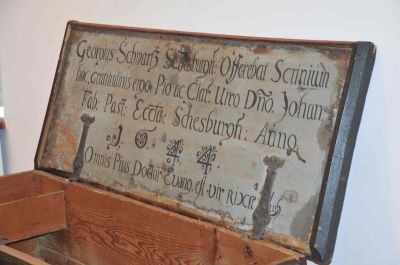 Georgius Schwartz Schesburgh: Offerebat Scrinium
hoc, gratitudinis ergo, Pio ac Clar: Viro Dño. Johan.
Fab: Past: Eccla: Schesburgh: Anno
1 6 4 4
Omnis Pius Doctor Evang. est Vir